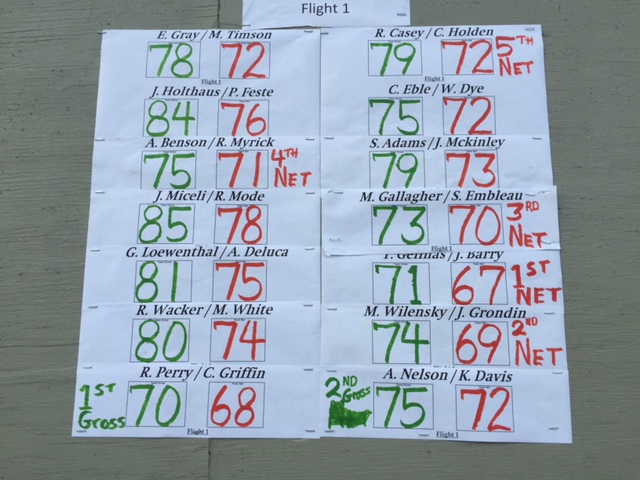 Flight 1
E. Gray / M. Timson
78 72
Flight 1
J. Holthaus / P. Feste
84 76
A. Benson / R. Myrick
75 71 4TH NET
J. Miceli / R. Mode
85 78
G. Loewenthal / A. Deluca
81 75
R. Wacker / M. White
80 74
R. Perry / C. Griffin
1ST Gross 70 68
Flight 1
R. Casey / C. Holden
79 72 5TH NET
Flight 1
C. Eble / W. Dye
75 72
S. Adams / J. Mckinley
79 73
M. Gallagher / S. Embleau
73 70 3RD NET
Flight 1
/ J. Barry
71 67 1ST NET
M. Wilensky / J. Grondin
74 69 2ND NET
A. Nelson / K. Davis
2ND Gross 75 72
Flight 1